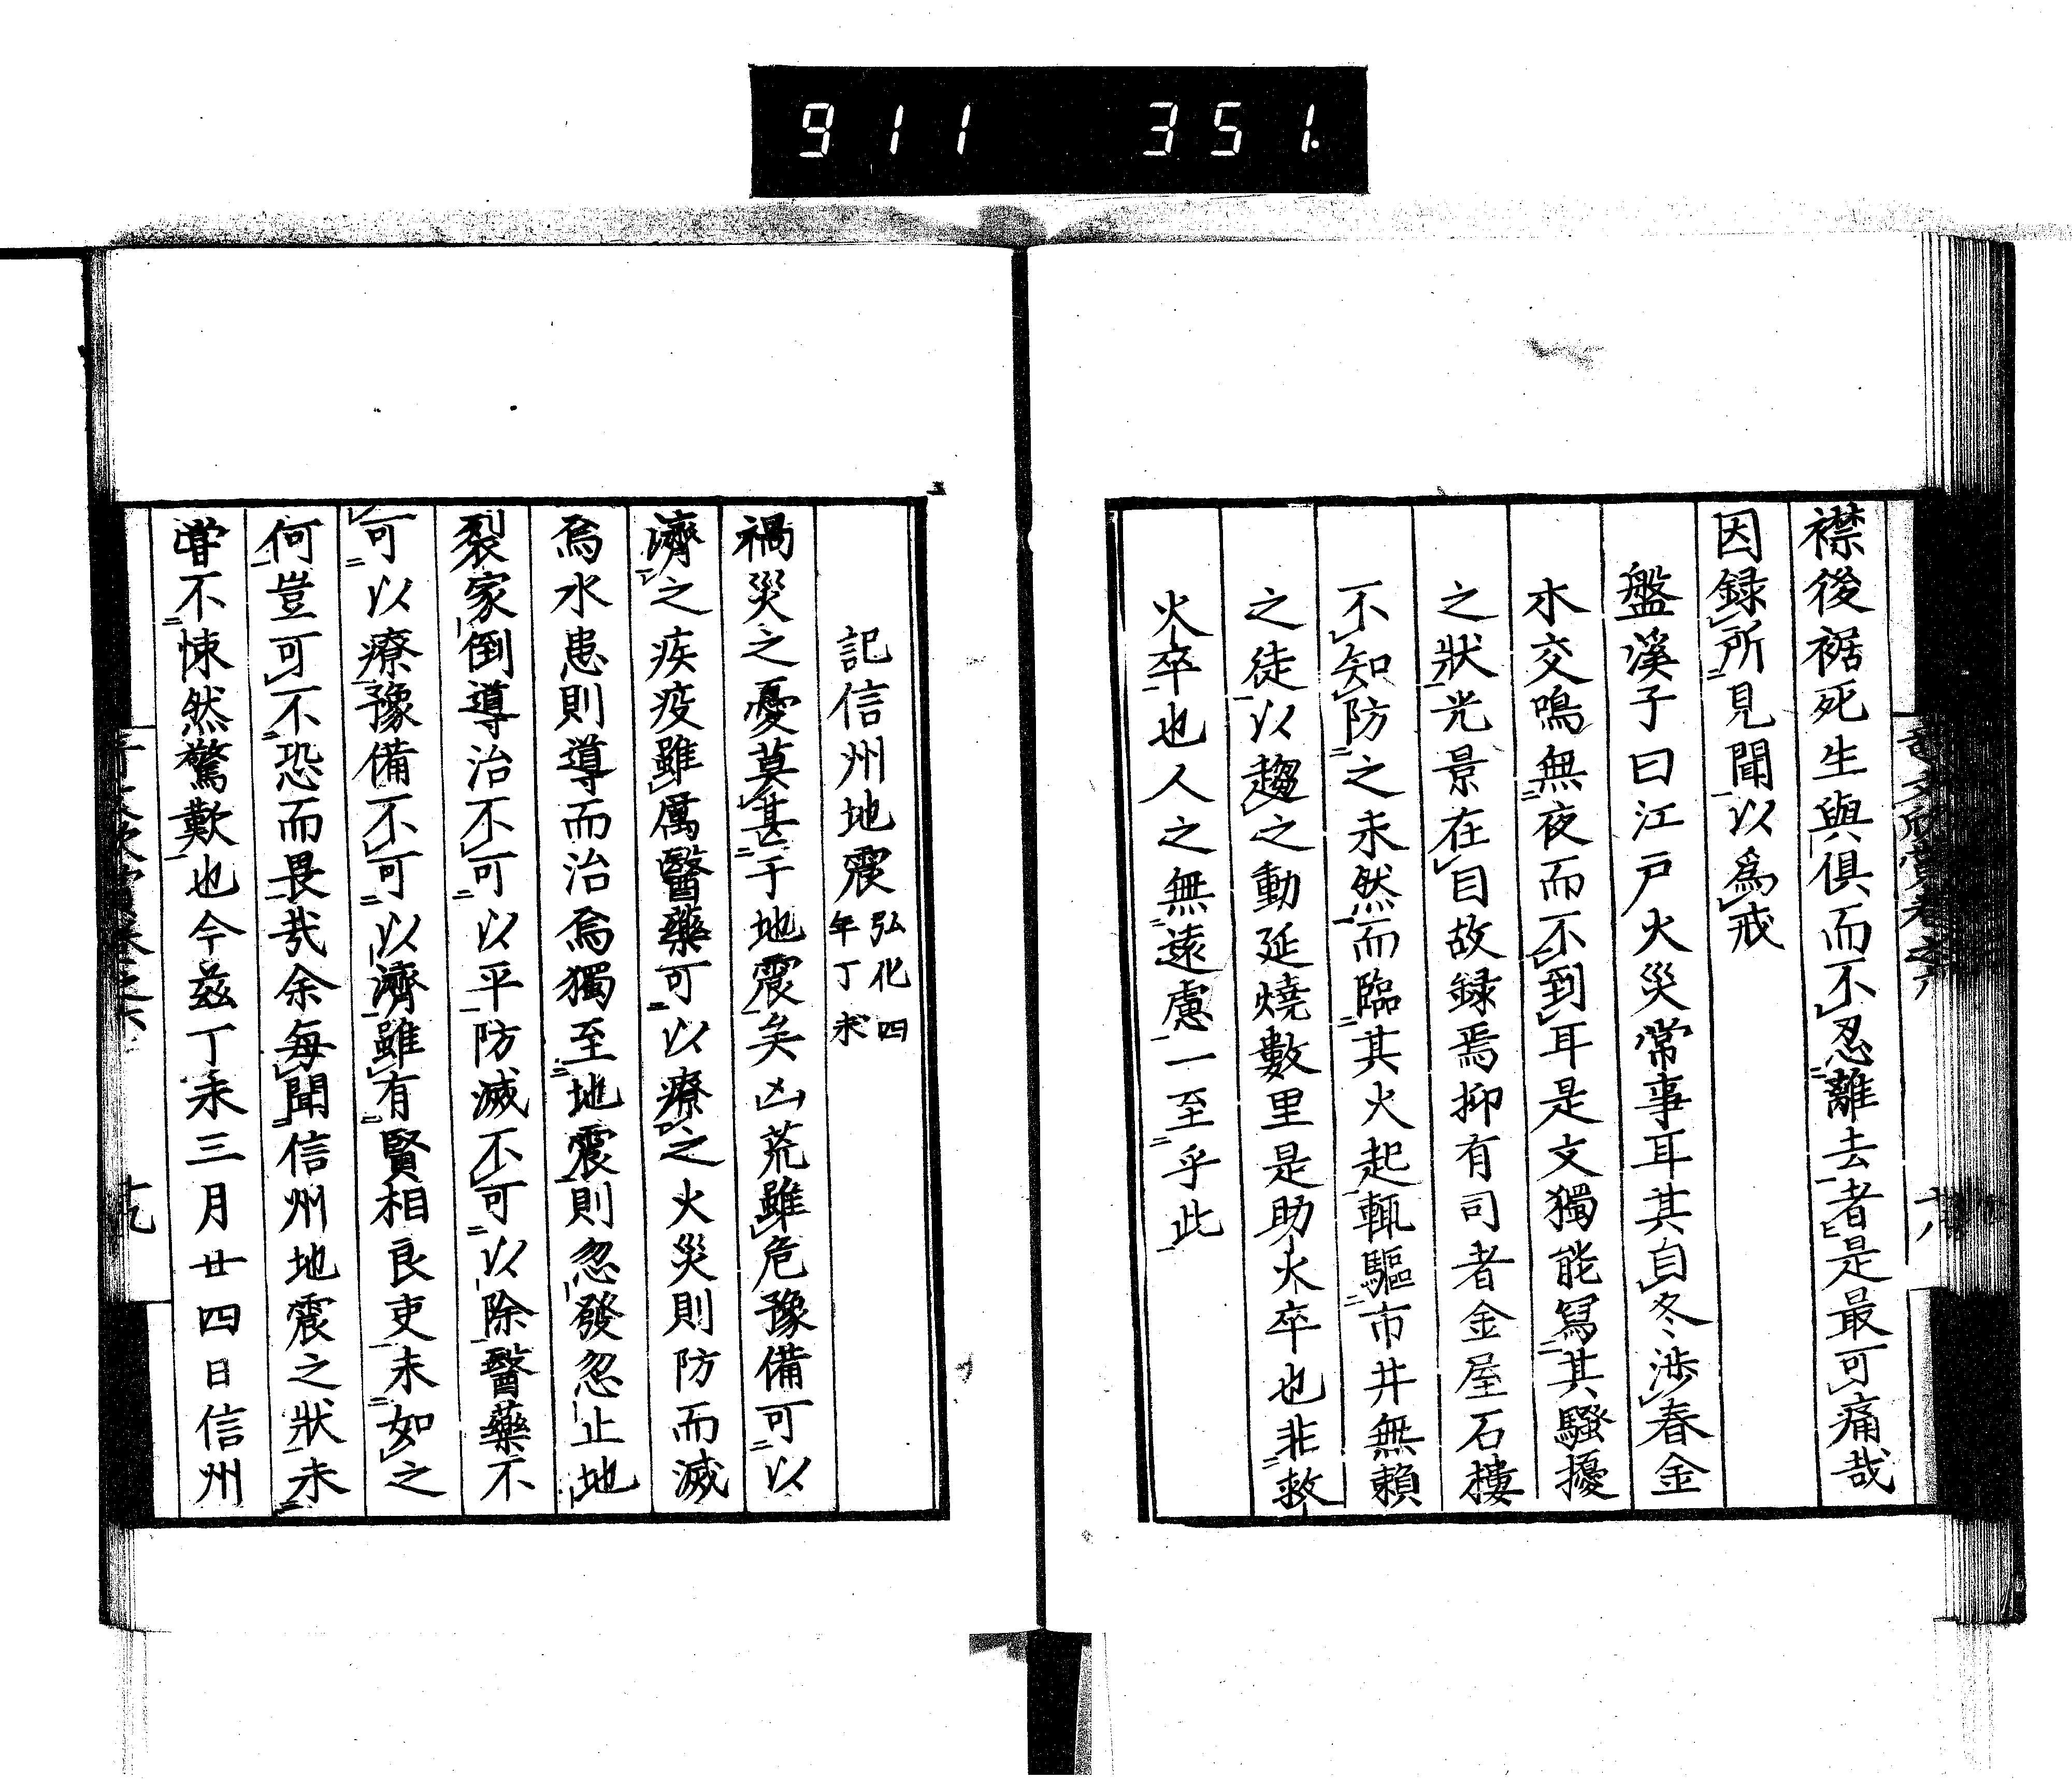 911 351.
襟後裾死生與俱而不忍離去者是最可痛哉
因録所見聞以爲戒
盤溪子曰江戸火災常事耳其自冬渉春金
水交鳴無夜而不到耳是文獨能冩其騷擾
之狀光景在目故録焉抑有司者金屋石樓
不知防之未然而臨其火起輒驅市井無賴
之徒以趨之動延燒數里是助火卒也非救
火卒也人之無遠慮一至乎此
記信州地震 弘化四
年丁未
禍災之憂莫甚于地震矣凶荒雖危豫備可以
濟之疾疫雖厲醫藥可以療之火災則防而滅
焉水患則導而治焉獨至地震則忽發忽止地
裂家倒導治不可以平防滅不可以除醫藥不
可以療豫備不可以濟雖有賢相良吏未如之
何豈可不恐而畏哉余每聞信州地震之狀未
嘗不悚然驚歎也今茲丁未三月廿四日信州